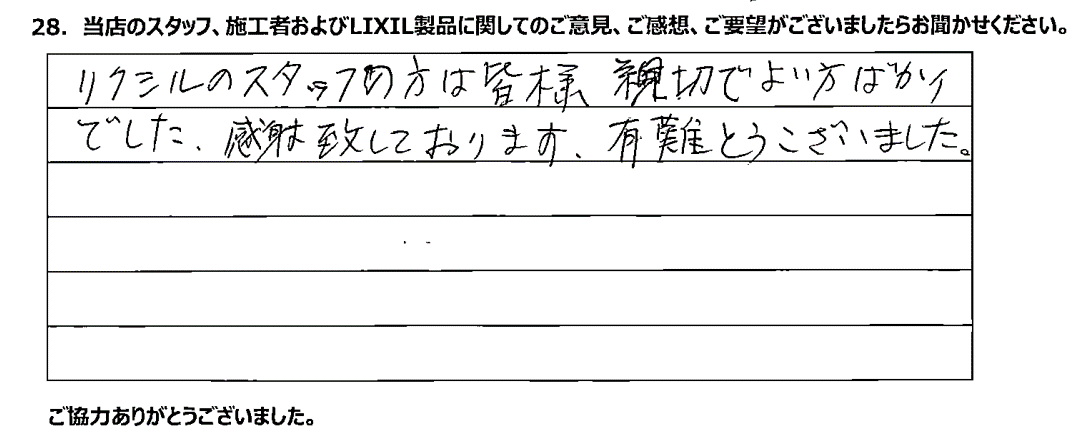 28. 当店のスタッフ、施工者およびLIXIL製品に関してのご意見、ご感想、ご要望がございましたらお聞かせください。
リクシルのスタッフの方は皆様 親切でよい方ばかり
でした、感謝致しております、有難とうございました。
ご協力ありがとうございました。